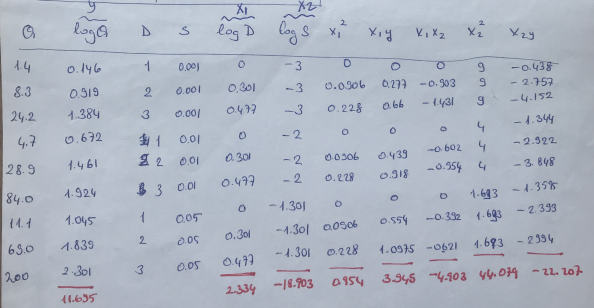 y x₁ x₂
Q logQ D S log D log S x₁² x₁y x₁x₂ x₂² x₂y
1.4 0.146 1 0.001 0 -3 0 0 0 9 -0.438
8.3 0.919 2 0.001 0.301 -3 0.0906 0.277 -0.903 9 -2.757
24.2 1.384 3 0.001 0.477 -3 0.228 0.66 -1.431 9 -4.152
4.7 0.672 1 0.01 0 -2 0 0 0 4 -1.344
28.9 1.461 2 0.01 0.301 -2 0.0906 0.439 -0.602 4 -2.922
84.0 1.924 3 0.01 0.477 -2 0.228 0.918 -0.954 4 -3.848
11.1 1.045 1 0.05 0 -1.301 0 0 0 1.693 -1.359
69.0 1.839 2 0.05 0.301 -1.301 0.0906 0.554 -0.392 1.693 -2.393
200 2.301 3 0.05 0.477 -1.301 0.228 1.0975 -0.621 1.693 -2.994
11.695 2.334 -18.903 0.954 3.945 -4.903 44.079 -22.207